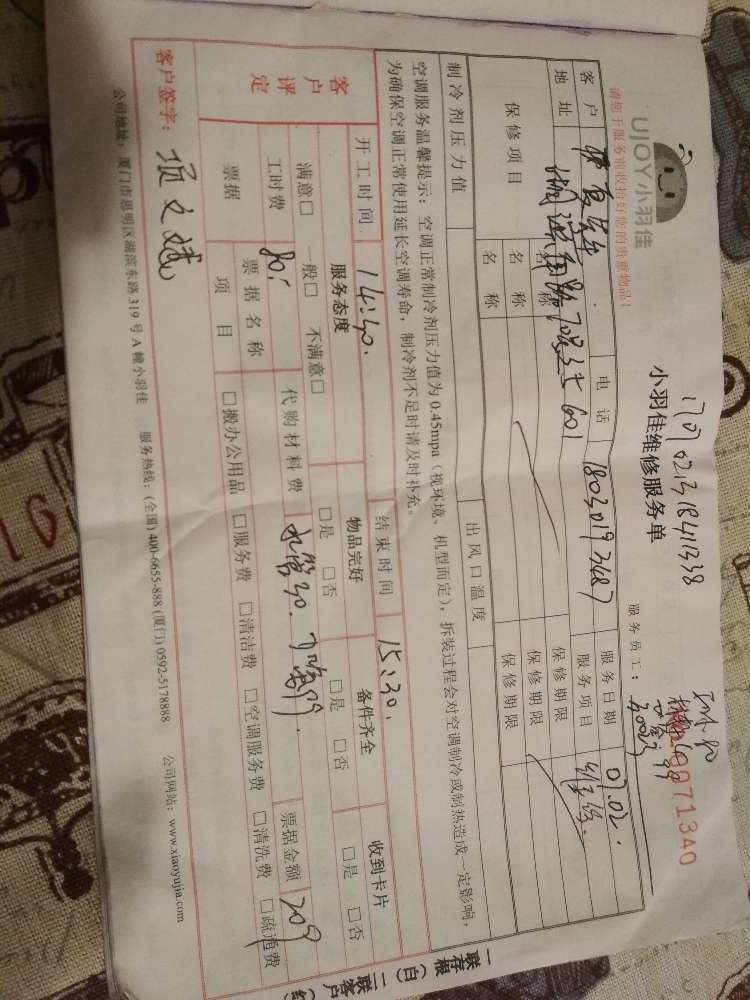 请您于服务前收拾好您的贵重物品！
UJOY小羽佳
170702131841338
小羽佳维修服务单
服务员工：
0071340
客户 电话 18030193687 服务日期 07.02.
地址 601 服务项目 维修
保修项目 名称 保修期限
名称 保修期限
名称 保修期限
制冷剂压力值 出风口温度
空调服务温馨提示：空调正常制冷剂压力值为 0.45mpa（视环境、机型而定），拆装过程会对空调制冷或制热造成一定影响，
为确保空调正常使用延长空调寿命，制冷剂不足时请及时补充。
开工时间 14:40. 结束时间 15:30.
客户评定 服务态度 物品完好 备件齐全 收到卡片
满意□ 一般□ 不满意□ □是 □否 □是 □否 □是 □否
工时费 80. 代购材料费 水管30. 票据金额 209
票据 票据名称
项目 □搬办公用品 □服务费 □清洁费 □空调服务费 □清洗费 □疏通费
客户签字： 项文斌
公司地址：厦门市思明区湖滨东路 319 号 A 幢小羽佳 服务热线：(全国) 400-6655-888 (厦门) 0592-5178888 公司网站：www.xiaoyujia.com
一联存根（白）二联客户（红